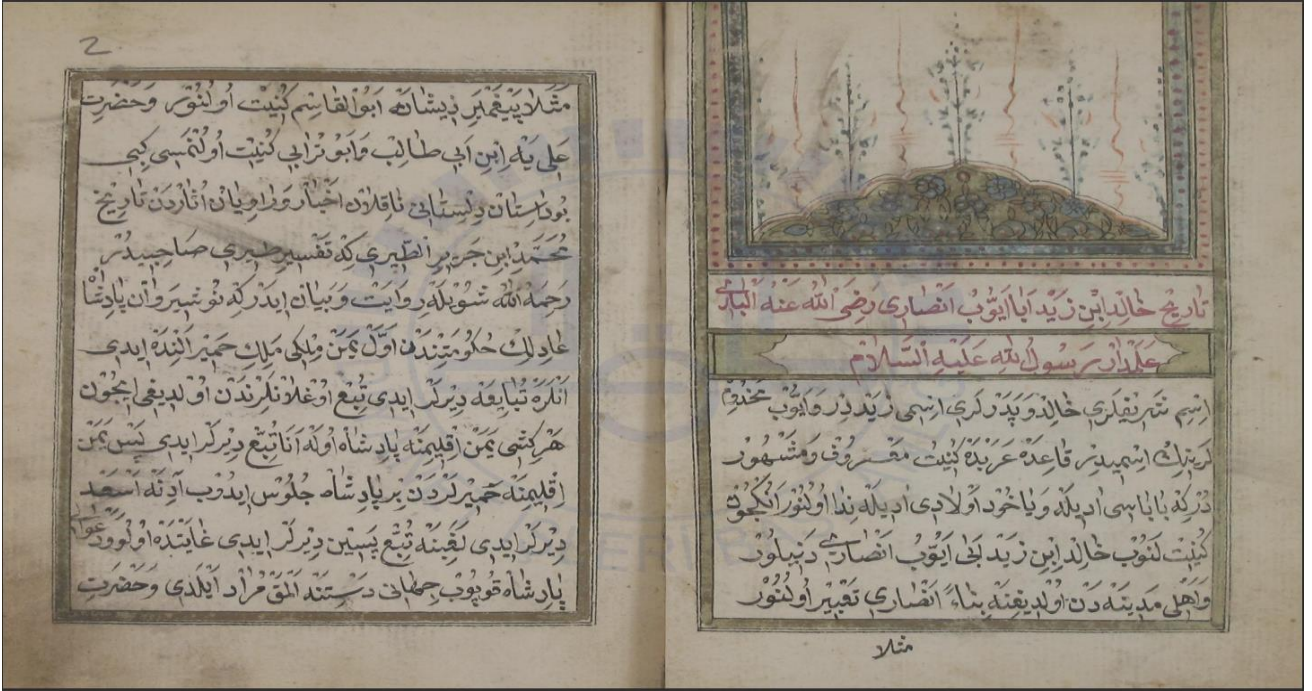 تاريخ خالد ابن زيد ابا ايوب انصاري رضى الله عنه البارى
علمدار رسول الله عليه السلام
اسم شريفلري خالد و پدرلري اسمى زيددر و ايوب مخدوم
لرينك اسميدر قاعده عربده كنيت معروف و مشهور
دركه باباسى اديله و ياخود اولادى اديله ندا اولنور انكچون
كنيت لنوب خالد ابن زيد ابى ايوب انصارى دينيلور
و اهلى مدينه دن اولديغنه بناءً انصارى تعبير اولنور
مثلا
2
مثلا پيغمبر ذيشانه ابوالقاسم كنيت اولنور و حضرت
على يه ابن ابي طالب و ابو ترابى كنيت اولنمسى كبى
بو داستان دلستانى ناقلان اخبار و راويان اثاردن تاريخ
محمد ابن جرير الطبرى كه تفسير طبرى صاحبيدر
رحمة الله شويله روايت و بيان ايدركه نوشيروان پادشا
عادلك حكومتندن اول يمن ملكى ملك حمير النده ايدى
انلره تبايعه ديرلر ايدى تبع اوغلانلرندن اولديغى ايچون
هر كشى يمن اقليمنه پادشاه اوله انا تبع ديرلر ايدى پس يمن
اقليمنه حميرلردن بر پادشاه جلوس ايدوب آدنه اسعد
ديرلر ايدى لقبنه تبع پسين ديرلر ايدى غايتده اولو
پادشاه قوپوب جهانى دستنه المق مراد ايلدى و حضرت